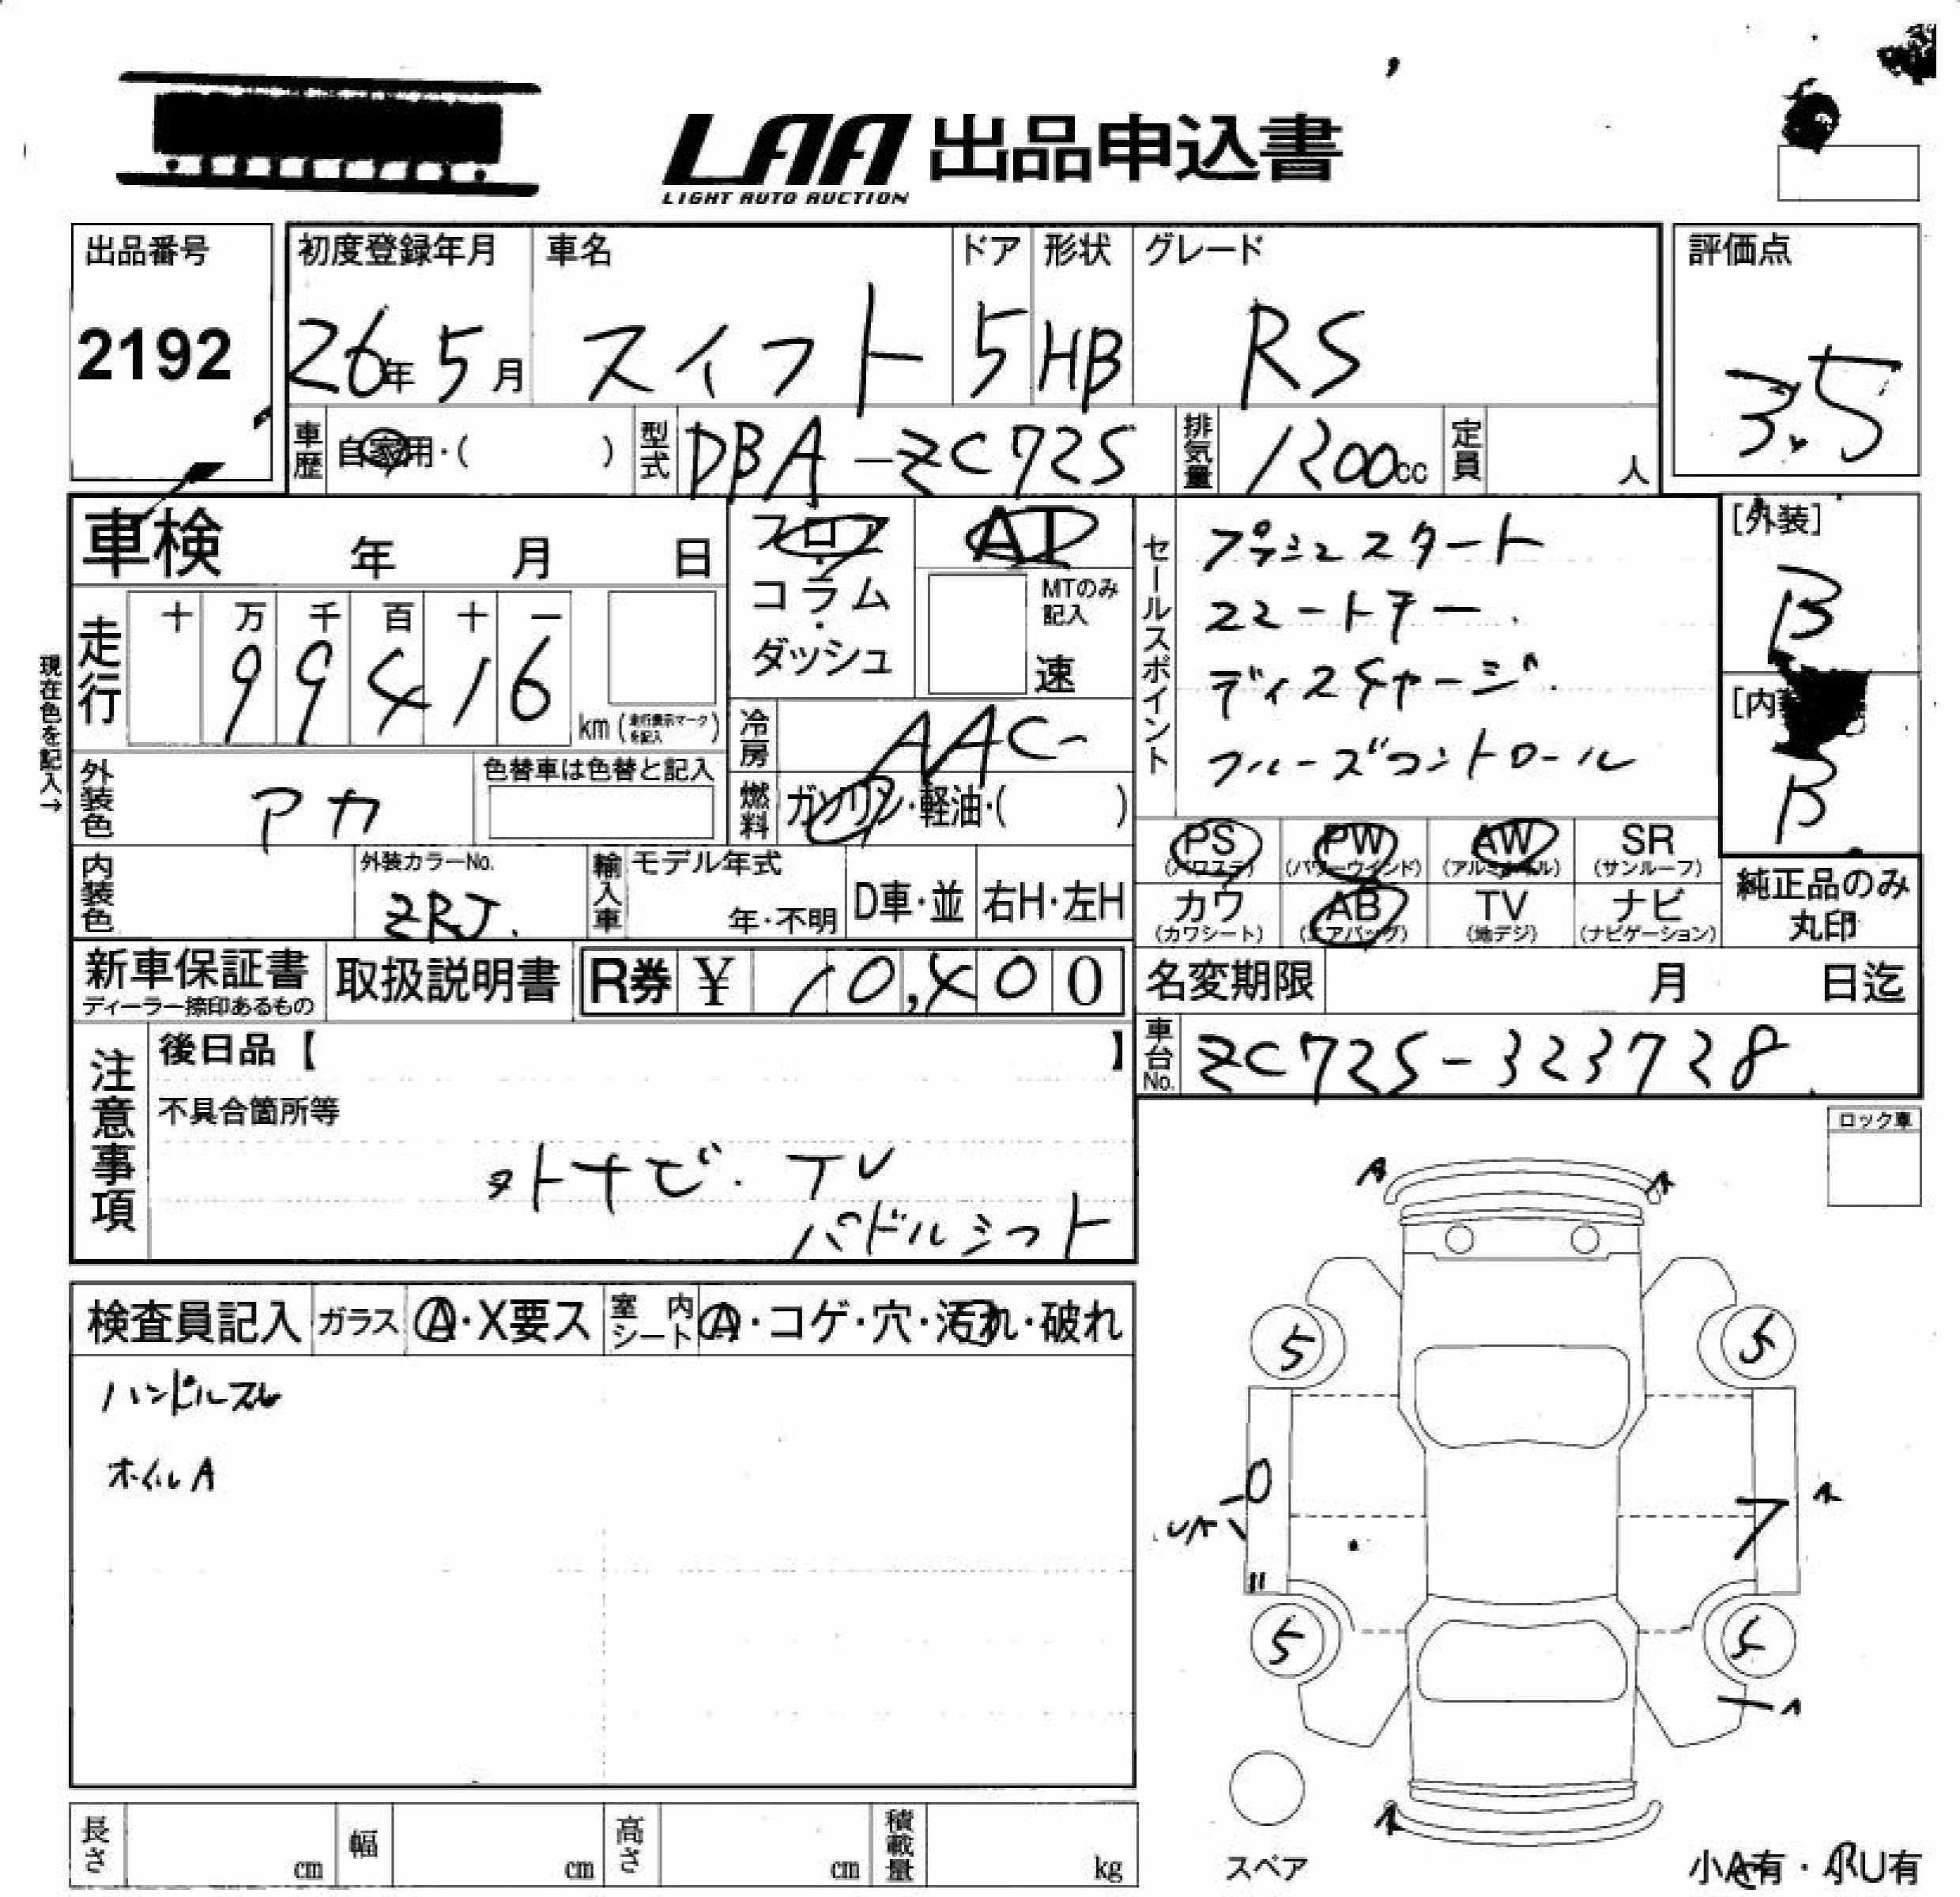 LAA 出品申込書
LIGHT AUTO AUCTION
出品番号
2192
初度登録年月
26年5月
車名
スイフト
ドア
5
形状
HB
グレード
RS
評価点
3.5
車歴
自家用・( )
型式
DBA-ZC72S
排気量
1200cc
定員
人
車検 年 月 日
フロア・コラム・ダッシュ
AT
MTのみ記入
速
セールスポイント
プッシュスタート
スマートキー.
ディスチャージ.
クルーズコントロール
[外装]
B
[内装]
B
現在色を記入→
走行
十 万 千 百 十 一
9 9 4 1 6
km(走行表示マークを記入)
冷房
AAC
燃料
ガソリン・軽油・( )
外装色
アカ
色替車は色替と記入
内装色
外装カラーNo.
ZRJ.
輸入車
モデル年式
年・不明
D車・並
右H・左H
PS
(パワステ)
PW
(パワーウインド)
AW
(アルミホイール)
SR
(サンルーフ)
カワ
(カワシート)
AB
(エアバッグ)
TV
(地デジ)
ナビ
(ナビゲーション)
純正品のみ
丸印
新車保証書
ディーラー捺印あるもの
取扱説明書
R券 ¥ 10,400
名変期限 月 日迄
車台No.
ZC72S-323728
注意事項
後日品【 】
不具合箇所等
外ナビ. TV
パドルシフト
ロック車
検査員記入
ガラス
A・X要ス
室内シート
A・コゲ・穴・汚れ・破れ
ハンドルスレ
ホイルA
A
A
5
5
UA
7
A
5
5
A
A
スペア
小A有・小U有
長さ cm
幅 cm
高さ cm
積載量 kg